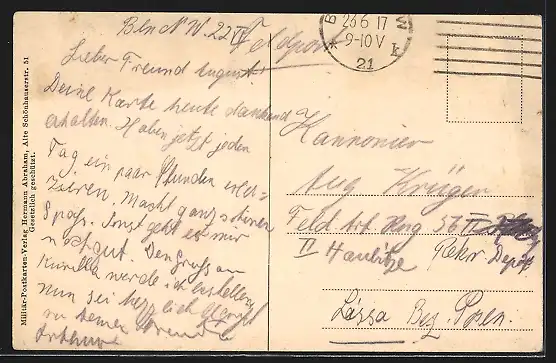 Bln N.W. 22 VI
Feldpost
Lieber Freund August
Deine Karte heute dankend
erhalten. Haben jetzt jeden
Tag ein paar Stunden exer-
zieren, Macht ganz schönen
Spaß. Sonst geht es mir
noch gut. Den Gruß an
Kurilla werde ich bestellen
nun sei herzlich gegrüßt
von deinem Freund
Arthur
23.6.17
9-10 V
21
Kannonier
Aug Krüger
Feld Art. Rng 56
II Haubitze Rekr. Depot
Lissa Bez. Posen.
Militär-Postkarten-Verlag Hermann Abraham, Alte Schönhauserstr. 51
Gesetzlich geschützt.